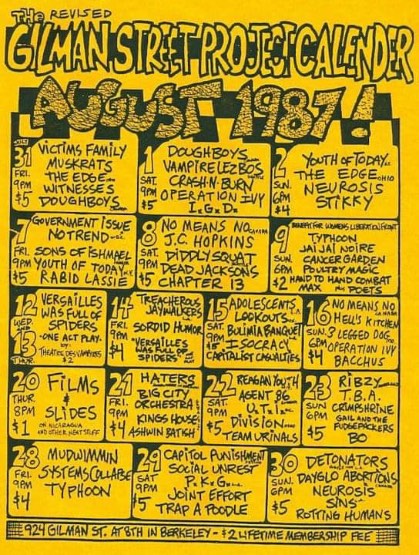 THE REVISED
GILMAN STREET PROJECT CALENDER
AUGUST 1987!
JULY
31
FRI.
9PM
$5
VICTIMS FAMILY
MUSKRATS
THE EDGE
WITNESSES
DOUGHBOYS
1
SAT.
9PM
$5
DOUGHBOYS
VAMPIRE LEZBOS
CRASH·N·BURN
OPERATION IVY
2
SUN.
6PM
$4
YOUTH OF TODAY
THE EDGE OHIO
NEUROSIS
STIKKY
7
FRI.
9PM
$5
GOVERNMENT ISSUE
NO TREND
SONS OF ISHMAEL
YOUTH OF TODAY
RABID LASSIE
8
SAT.
9PM
$5
NO MEANS NO
J.C. HOPKINS
DIDDLY SQUAT
DEAD JACKSONS
CHAPTER 13
9
SUN.
6PM
$2
BENEFIT FOR WOMENS LIBERATION FRONT
TYPHOON
JAI JAI NOIRE
CANCER GARDEN
POULTRY MAGIC
HAND TO HAND COMBAT
POETS
12
WED.
13
THUR.
VERSAILLES
WAS FULL OF
SPIDERS
-ONE ACT PLAY-
BY-
THEATRE DES VAMPIRES
$2
14
FRI.
9PM
$4
TREACHEROUS
JAYWALKERS
SORDID HUMOR
"VERSAILLES
WAS FULL OF
SPIDERS"
15
SAT.
9PM
$5
ADOLESCENTS
LOOKOUTS
BULIMIA BANQUET
ISOCRACY
CAPITALIST CASUALTIES
16
SUN.
6PM
$4
NO MEANS NO
HELL'S KITCHEN
3 LEGGED DOG
OPERATION IVY
BACCHUS
20
THUR.
8PM
$1
FILMS
&
SLIDES
ON NICARAGUA
AND OTHER NEAT STUFF
21
FRI.
9PM
$4
HATERS
BIG CITY
ORCHESTRA
KINGS HOUSE
ASHWIN BATISH
22
SAT.
9PM
$5
REAGAN YOUTH
AGENT 86
DIVISION
TEAM URINALS
23
SUN
6PM
$5
RIBZY
T.B.A.
CRIMPSHRINE
GAIL AND THE
FUDGEPACKERS
BO
28
FRI.
9PM
$4
MUDWIMMIN
SYSTEMS COLLAPSE
TYPHOON
29
SAT
9PM
$5
CAPITOL PUNISHMENT
SOCIAL UNREST
P.K.G.
JOINT EFFORT
TRAP A POODLE
30
SUN.
6PM
$5
DETONATORS
DAYGLO ABORTIONS
NEUROSIS
SINS
ROTTING HUMANS
924 GILMAN ST. AT 8TH IN BERKELEY - $2 LIFETIME MEMBERSHIP FEE